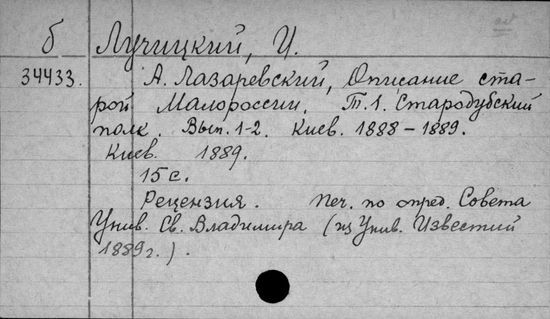 б Лучицкий, И.
34433. А. Лазаревский, Описание ста-
рой Малороссии. Т. 1. Стародубский
полк. Вып. 1-2. Киев. 1888-1889.
Киев. 1889.
15 с.
Рецензия. Печ. по опред. Совета
Унив. Св. Владимира (из Унив. Известий
1889 г.).